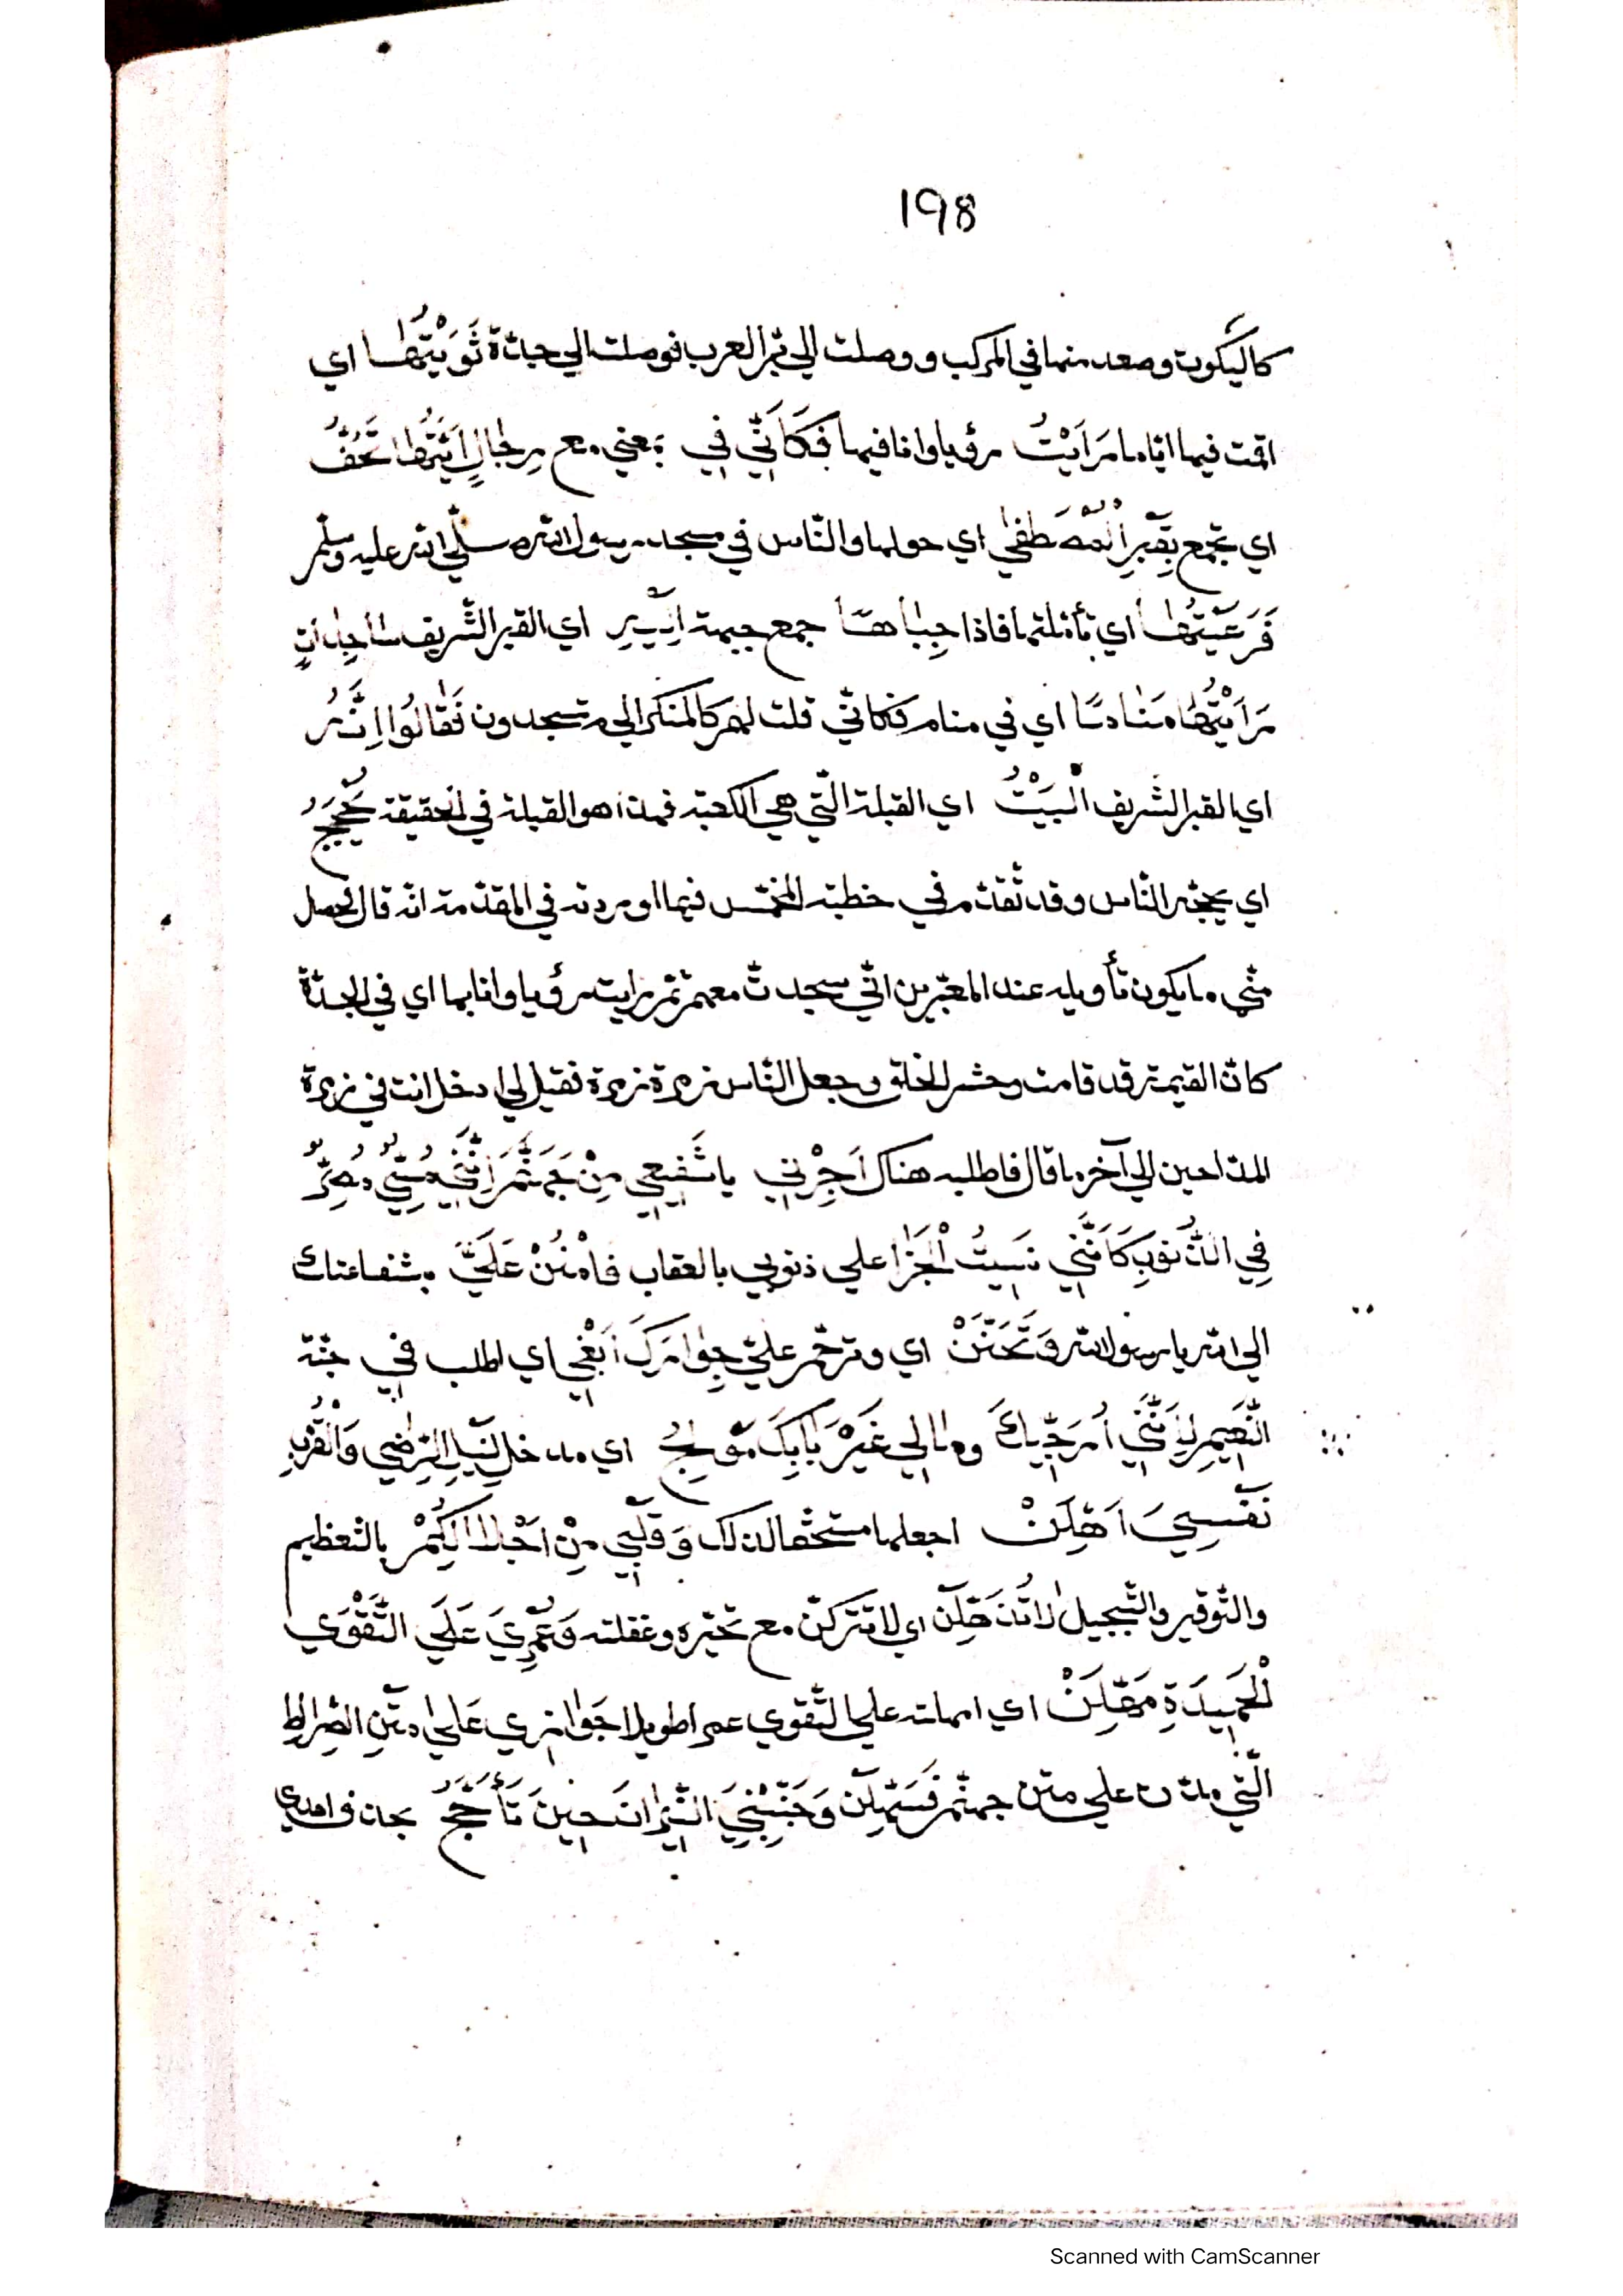 198
كاليكوت وصعد منها في المركب ووصلت الى برّ العرب فوصلت الي جدّة ثَوَيْتُهَا اي
اقمت فيها ايّاما رَاَيْتُ رؤيا وانا فيها فَكَاَنِّي فِي بمعني مع رِجَالٍ اَتَيْتُهَا تَحُفُّ
اي تجمع بِقَبْرِ الْمُصْطَفٰي اي حولها والنّاس في مسجد رسول الله صلّي الله عليه وسلّم
فَرَعَيْتُهَا اي تأمّلتها فاذا جِبَاهًا جمع جبهة اِلَيْهِ اي القبر الشّريف سَاجِدَاتٍ
رَاَيْتُهَا مَنَامًا اي في منام فكانّي قلت لهم كالمنكر الي م تسجدون فَقَالُوا اِنَّهُ
اي القبر الشريف الْبَيْتُ اي القبلة الّتي هي الكعبة فهذا هو القبلة في الحقيقة يُحَجَّجُ
اي يحجّه النّاس وقد تقدّم في خطبة المخمّس فيما اوردته في المقدّمة انّه قال لحصل
منّي ما يكون تأويله عند المعبّرين انّي سجدتّ معهم ثمّ رايت رؤيا وانا بها اي في الجدّة
كانّ القيمة قد قامت وحشر الخلق وجعل النّاس زمرة زمرة فقيل لي ادخل انت في زمرة
المدّاحين الي آخر ما قال فاطلبه هناك اَجِرْنِي يا شَفِيعِي مِنْ جَهَنَّمَ اِنَّنِي مُسِيٌ مُصِرٌّ
فِي الذُّنُوبِ كَاَنَّنِي نَسِيتُ الْجَزَا علي ذنوبي بالعقاب فَامْنُنْ عَلَيَّ بشفاعتك
الي الله يا رسول الله وَتَحَنَّنْ اي وترحّم عليّ جِوَارَكَ اَبْغِي اي اطلب فِي جنّة
النَّعِيمِ لِاَنَّنِي اُرَجِّيكَ وما لِي غَيْرَ بَابِكَ مَوْلِجُ اي مدخل لِنَيْلِ الرِّضٰي وَالْقُرْبِ
نَفْسِيَ اَهِّلَنْ اجعلها مستحقّا لذلك وَقَلْبِي مِنْ اَجْلَالِكُمْ بالتّعظيم
والتّوقير والتّبجيل لَا تُذْهِلَنْ اي لا تتركنّ مع تحيّره وغفلته وَعُمْرِيَ عَلَي التَّقْوَي
الْحَمِيدَةِ مَهِّلَنْ اي امهلته علي التّقوي عمرا طويلا جَوَازِي عَلٰي مَتْنِ الصِّرَاطِ
الّتي مدّت علي متن جهنّم فَسَهِّلَنْ وَجَنِّبْنِيَ النِّيرَانَ حِينَ تَأَجَّجُ